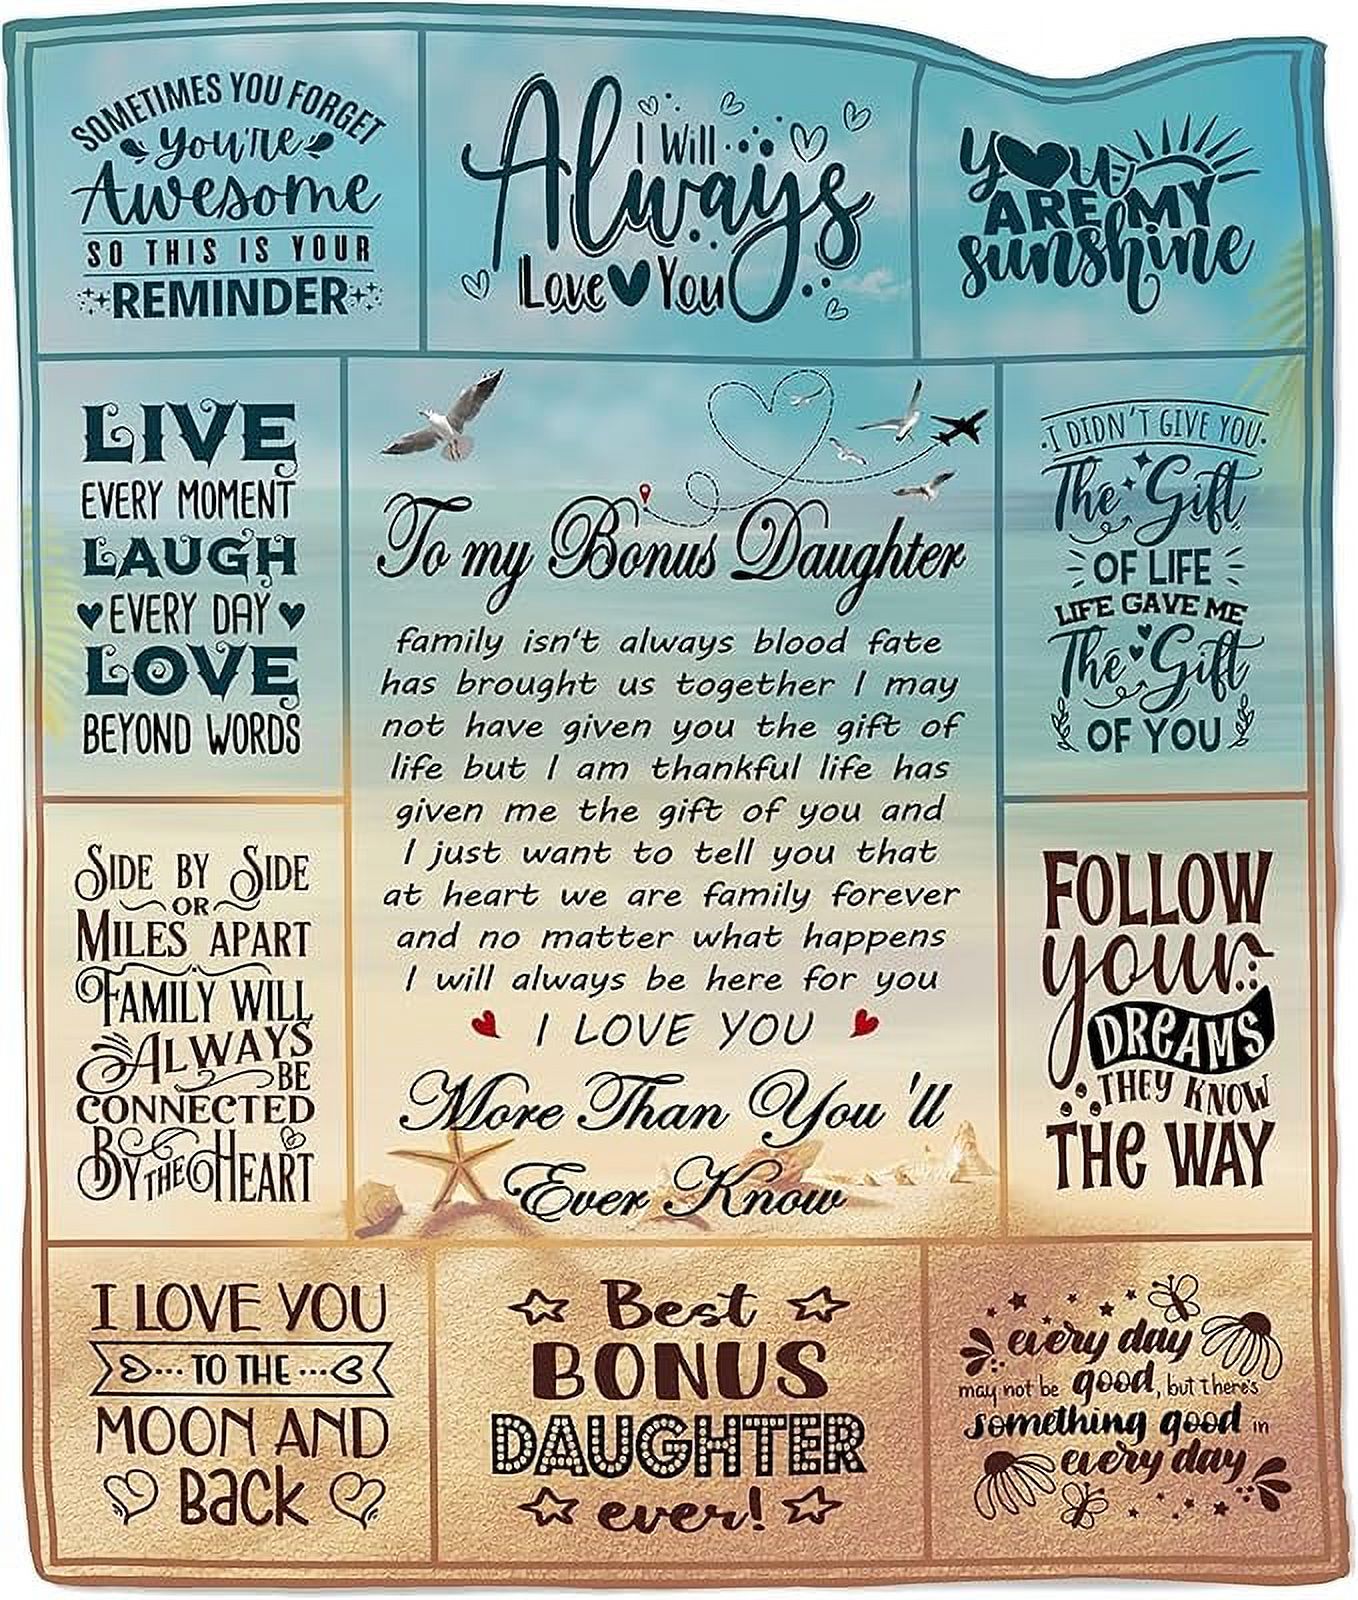 SOMETIMES YOU FORGET
you're
Awesome
SO THIS IS YOUR
REMINDER
I Will
Always
Love You
you
ARE MY
sunshine
LIVE
EVERY MOMENT
LAUGH
EVERY DAY
LOVE
BEYOND WORDS
To my Bonus Daughter
family isn't always blood fate
has brought us together I may
not have given you the gift of
life but I am thankful life has
given me the gift of you and
I just want to tell you that
at heart we are family forever
and no matter what happens
I will always be here for you
I LOVE YOU
More Than You 'll
Ever Know
I DIDN'T GIVE YOU
The Gift
OF LIFE
LIFE GAVE ME
The Gift
OF YOU
SIDE BY SIDE
OR
MILES APART
FAMILY WILL
ALWAYS
BE
CONNECTED
BY THE HEART
FOLLOW
your
DREAMS
THEY KNOW
THE WAY
I LOVE YOU
TO THE
MOON AND
BacK
Best
BONUS
DAUGHTER
ever!
every day
may not be good, but there's
something good in
every day